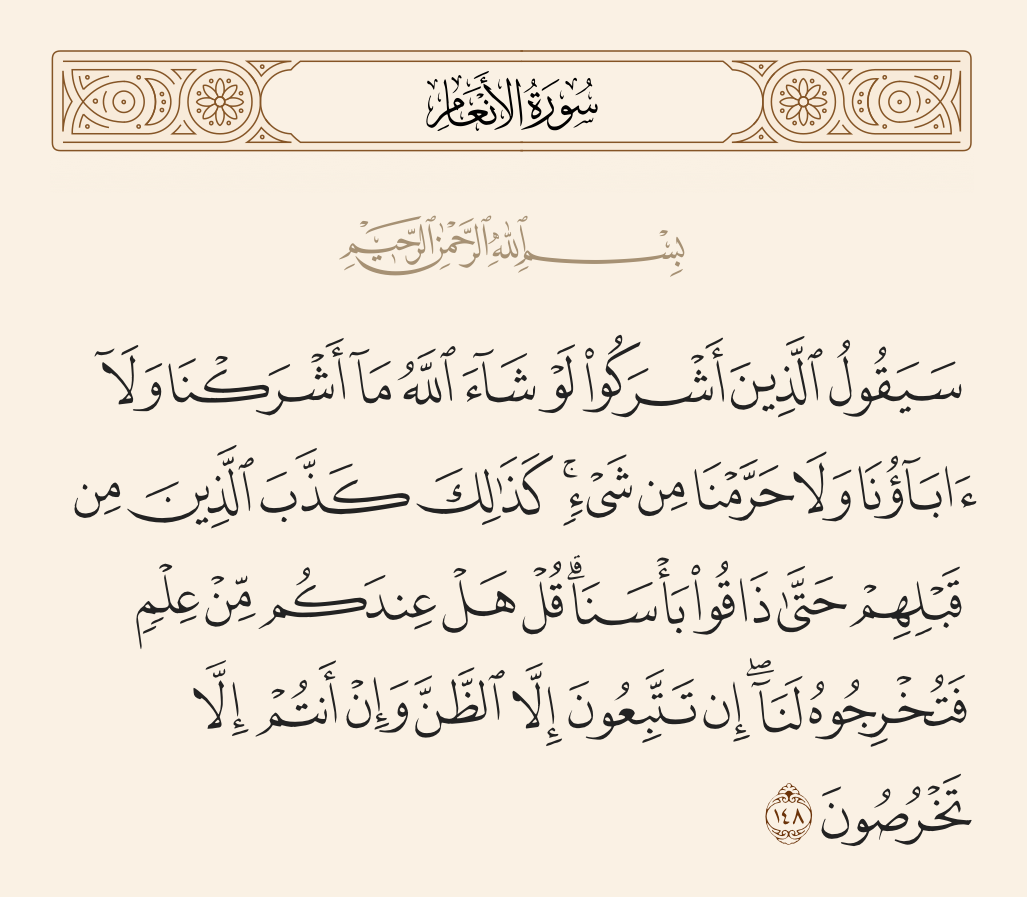 سُورَةُ الأَنْعَامِ
بِسْمِ ٱللَّهِ ٱلرَّحْمَٰنِ ٱلرَّحِيمِ
سَيَقُولُ ٱلَّذِينَ أَشْرَكُوا۟ لَوْ شَآءَ ٱللَّهُ مَآ أَشْرَكْنَا وَلَآ
ءَابَآؤُنَا وَلَا حَرَّمْنَا مِن شَىْءٍۢ ۚ كَذَٰلِكَ كَذَّبَ ٱلَّذِينَ مِن
قَبْلِهِمْ حَتَّىٰ ذَاقُوا۟ بَأْسَنَا ۗ قُلْ هَلْ عِندَكُم مِّنْ عِلْمٍۢ
فَتُخْرِجُوهُ لَنَآ ۖ إِن تَتَّبِعُونَ إِلَّا ٱلظَّنَّ وَإِنْ أَنتُمْ إِلَّا
تَخْرُصُونَ ١٤٨